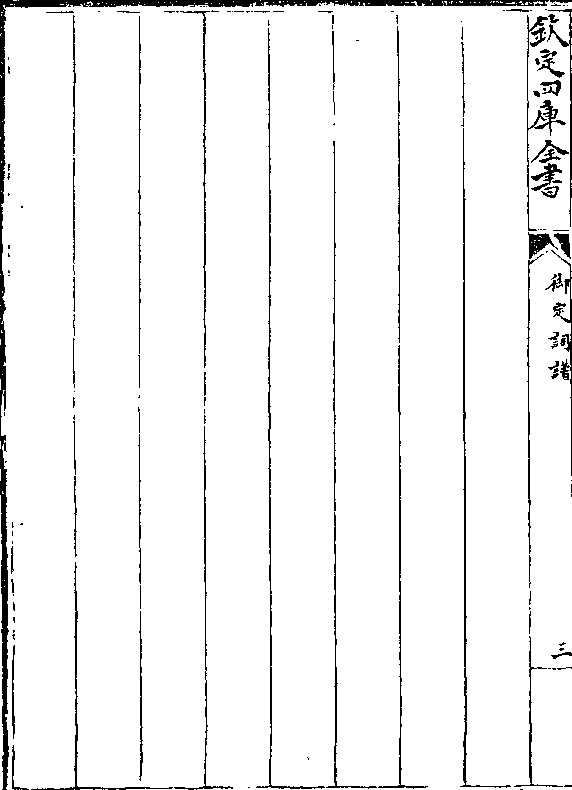 欽定四庫全書
御定詞譜
三